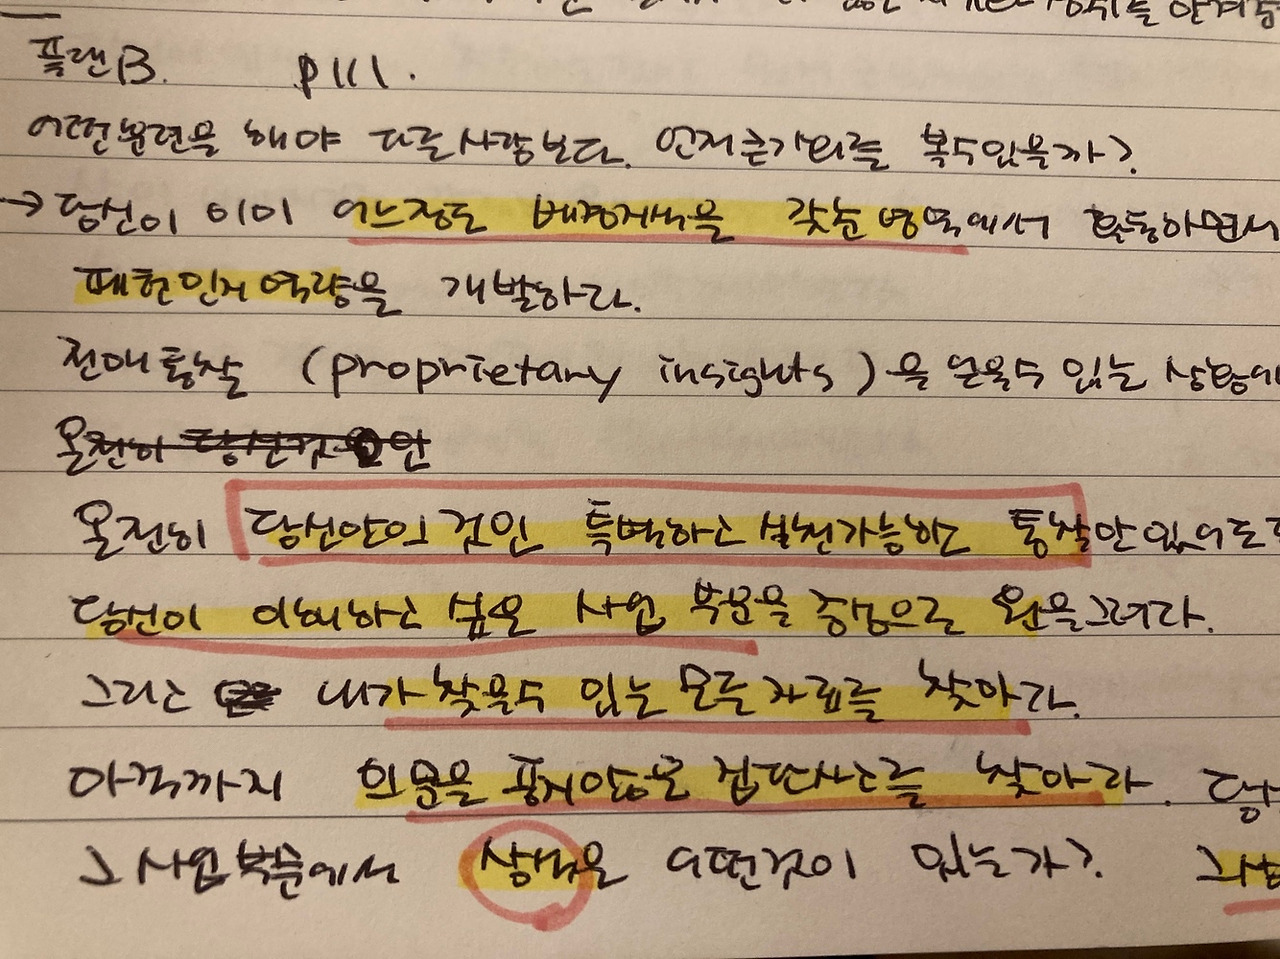 플랜B. P111.
어떤훈련을 해야 다른사람보다. 먼저큰기회를 볼수있을까?
→ 당신이 이미 어느정도 배경지식을 갖춘 영역에서 활동하면서
패턴인지역량을 개발하라.
전매통찰 (proprietary insights)을 얻을수 있는 상황에
온전히 당신것
온전히 당신만의 것인 특별하고 실천가능한 통찰만있어도
당신이 이해하고 싶은 사업 부문을 중심으로 원을그려라.
그리고 내가 찾을수 있는 모든자료를 찾아라.
아직까지 의문을 품지않은 집단사고를 찾아라. 당
그 사업부문에서 상식은 어떤것이 있는가?